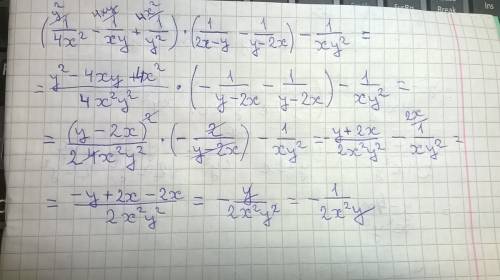 (1/4x² - 1/xy + 1/y²) · (1/2x-y - 1/y-2x) - 1/xy² =
= y² - 4xy + 4x² / 4x²y² · (- 1/y-2x - 1/y-2x) - 1/xy² =
= (y-2x)² / 2 4x²y² · (- 2/y-2x) - 1/xy² = y+2x / 2x²y² - 2x/ 1/xy² =
= -y+2x-2x / 2x²y² = - y/2x²y² = - 1/2x²y